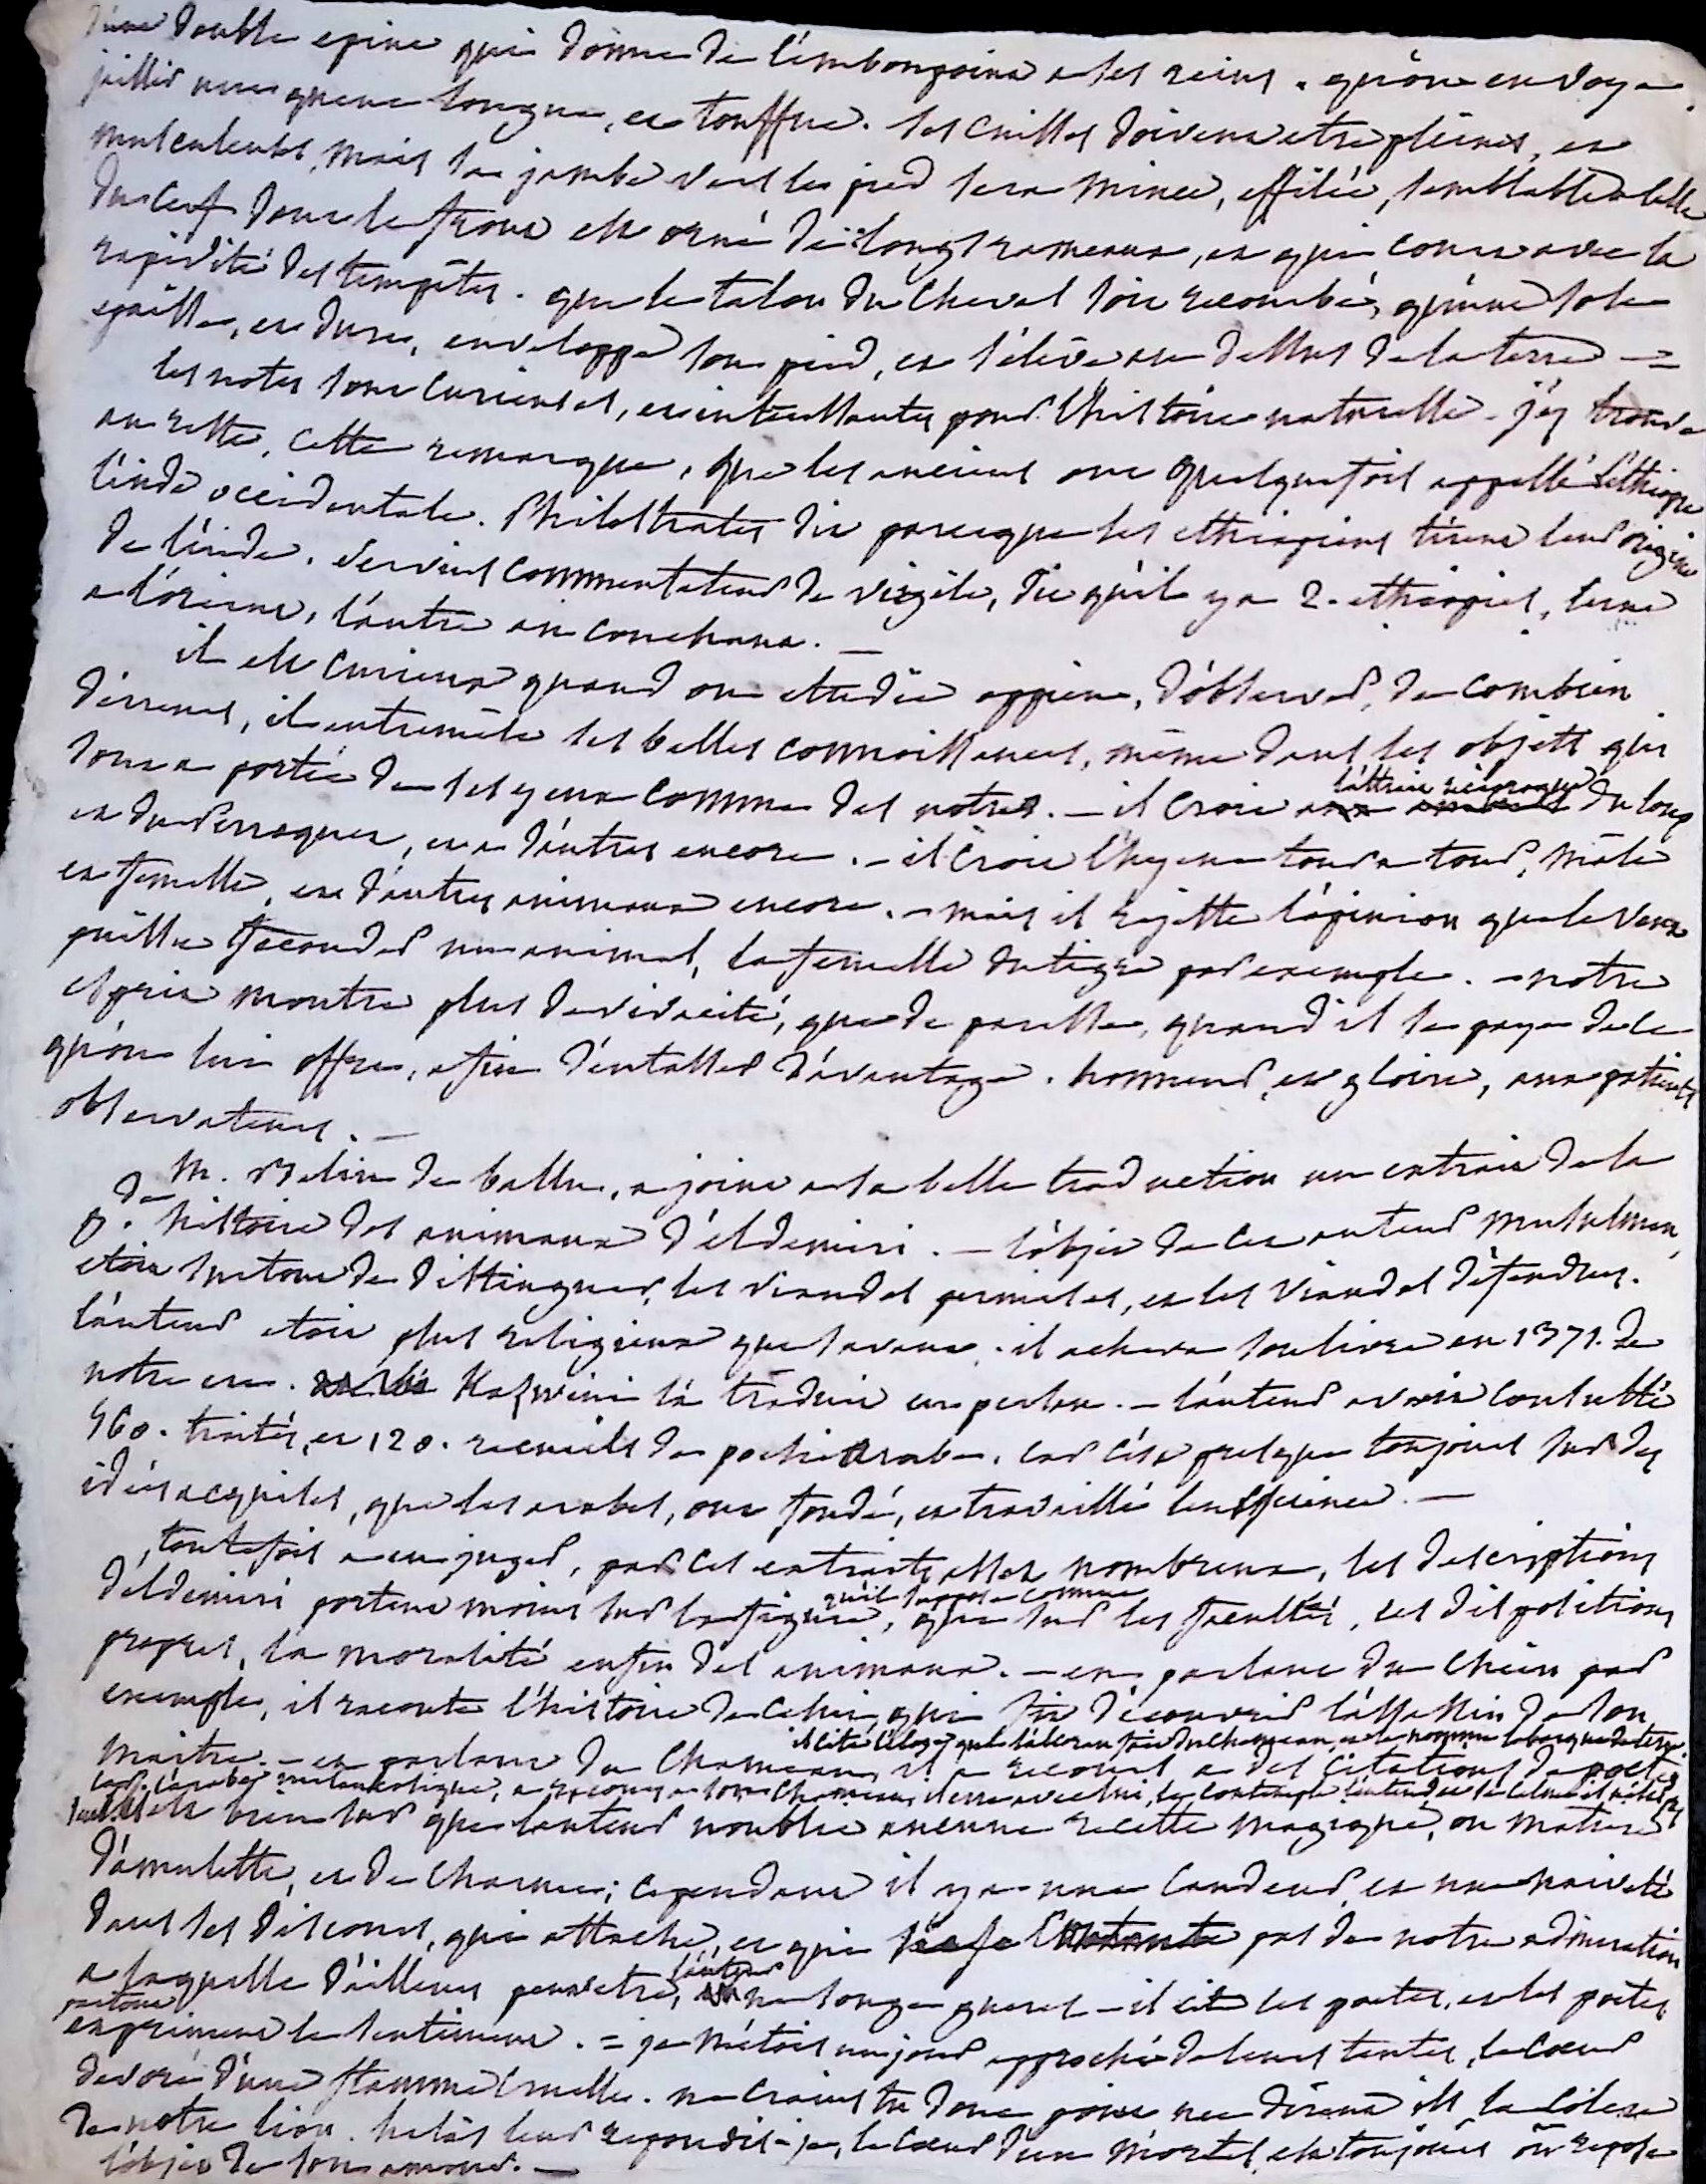 d'une double epine qui donne de l'embonpoint a ses reins. qu'on en voye
jaillir une queue longue, et touffue. ses cuisses doivent etre pleines, et
musculeuses, mais sa jambe vers le pied sera mince, effilée, semblable a celle
du cerf dont le front est orné de longs rameaux, et qui court avec la
rapidité des tempêtes. que le talon du cheval soit recourbé, qu'une sole
egalle, et dure, enveloppe son pied, et s'élève au dessus de la terre =
les notes sont curieuses, et interessantes pour l'histoire naturelle - j'y trouve
au reste, cette remarque, que les anciens ont quelquefois appellé l'éthiopie
l'inde occidentale. Philostrate dit parceque les ethiopiens tirent leur origine
de l'inde. Servius commentateur de virgile, dit qu'il y a 2. ethiopies, l'une
a l'orient, l'autre au couchant. —
il est curieux quand on etudie oppien, d'observer, de combien
d'erreurs, il entremêle ses belles connoissances, même dans les objets qui
sont a portée de ses yeux comme des notres. — il croit a
l'attrait réciproque
du loup
et du perroquet, et a d'autres encore. — il croit l'hyene tour a tour, mâle
et femelle, et d'autres animaux encore. — mais il rejette l'opinion que le vent
puisse feconder un animal, la femelle du tigre par exemple. — notre
esprit montre plus de vivacité, que de paresse, quand il se paye de ce
qu'on lui offre, afin d'entasser d'avantage. honneur, et gloire, aux patients
observateurs. —
M. Belin de ballu, a joint a sa belle traduction un extrait de la
g.de histoire des animaux d'eldemiri. — l'objet de cet auteur musulman,
etoit surtout de distinguer, les viandes permises, et les viandes défendues.
l'auteur etoit plus religieux que savant. il acheva son livre en 1371. de
notre ere. Kazwini l'a traduit en persan. — l'auteur avoit consulté
560. traités, et 120. recueils de poesie arabe. car c'est presque toujours sur des
idées acquises, que les arabes, ont fondé, et travaillé leur science. —
toutefois a en juger, par ces extraits assez nombreux, les descriptions
d'eldemiri portent moins sur la figure,
qu'il suppose connue
que sur les facultés, les dispositions
propres, la moralité enfin des animaux. — en parlant du chien par
exemple, il raconte l'histoire de celui, qui fit découvrir l'assassin de son
maitre. — en parlant du chameau, il a recours a des citations de poetes
il cite l'éloge que l'alcoran fait du chameau, et le nomme la barque de terre.
car l'arabe melancolique, a recours a son chameau, il erre avec lui, le contemple
il est bien sur que l'auteur n'oublie aucune recette magique, ou matiere
d'amulette, et de charme; cependant il y a une candeur et une naiveté
dans ses discours, qui attache, et qui pas de notre admiration
a laquelle d'ailleurs peut etre,
l'auteur
ne songe gueres — il cite les poetes, et les poetes
partout
expriment le sentiment. = je m'étois un jour approché de leurs tentes, le cœur
devoré d'une flamme cruelle. ne crains tu donc point me dirent ils la colere
de notre lion. helas leur repondis-je, le cœur d'un mortel, est toujours où repose
l'objet de son amour. —